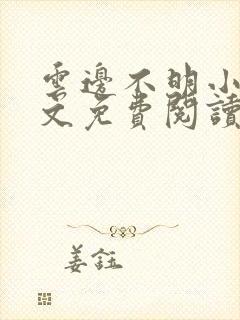 雲邊不明小
文免費閱讀
姜鈺